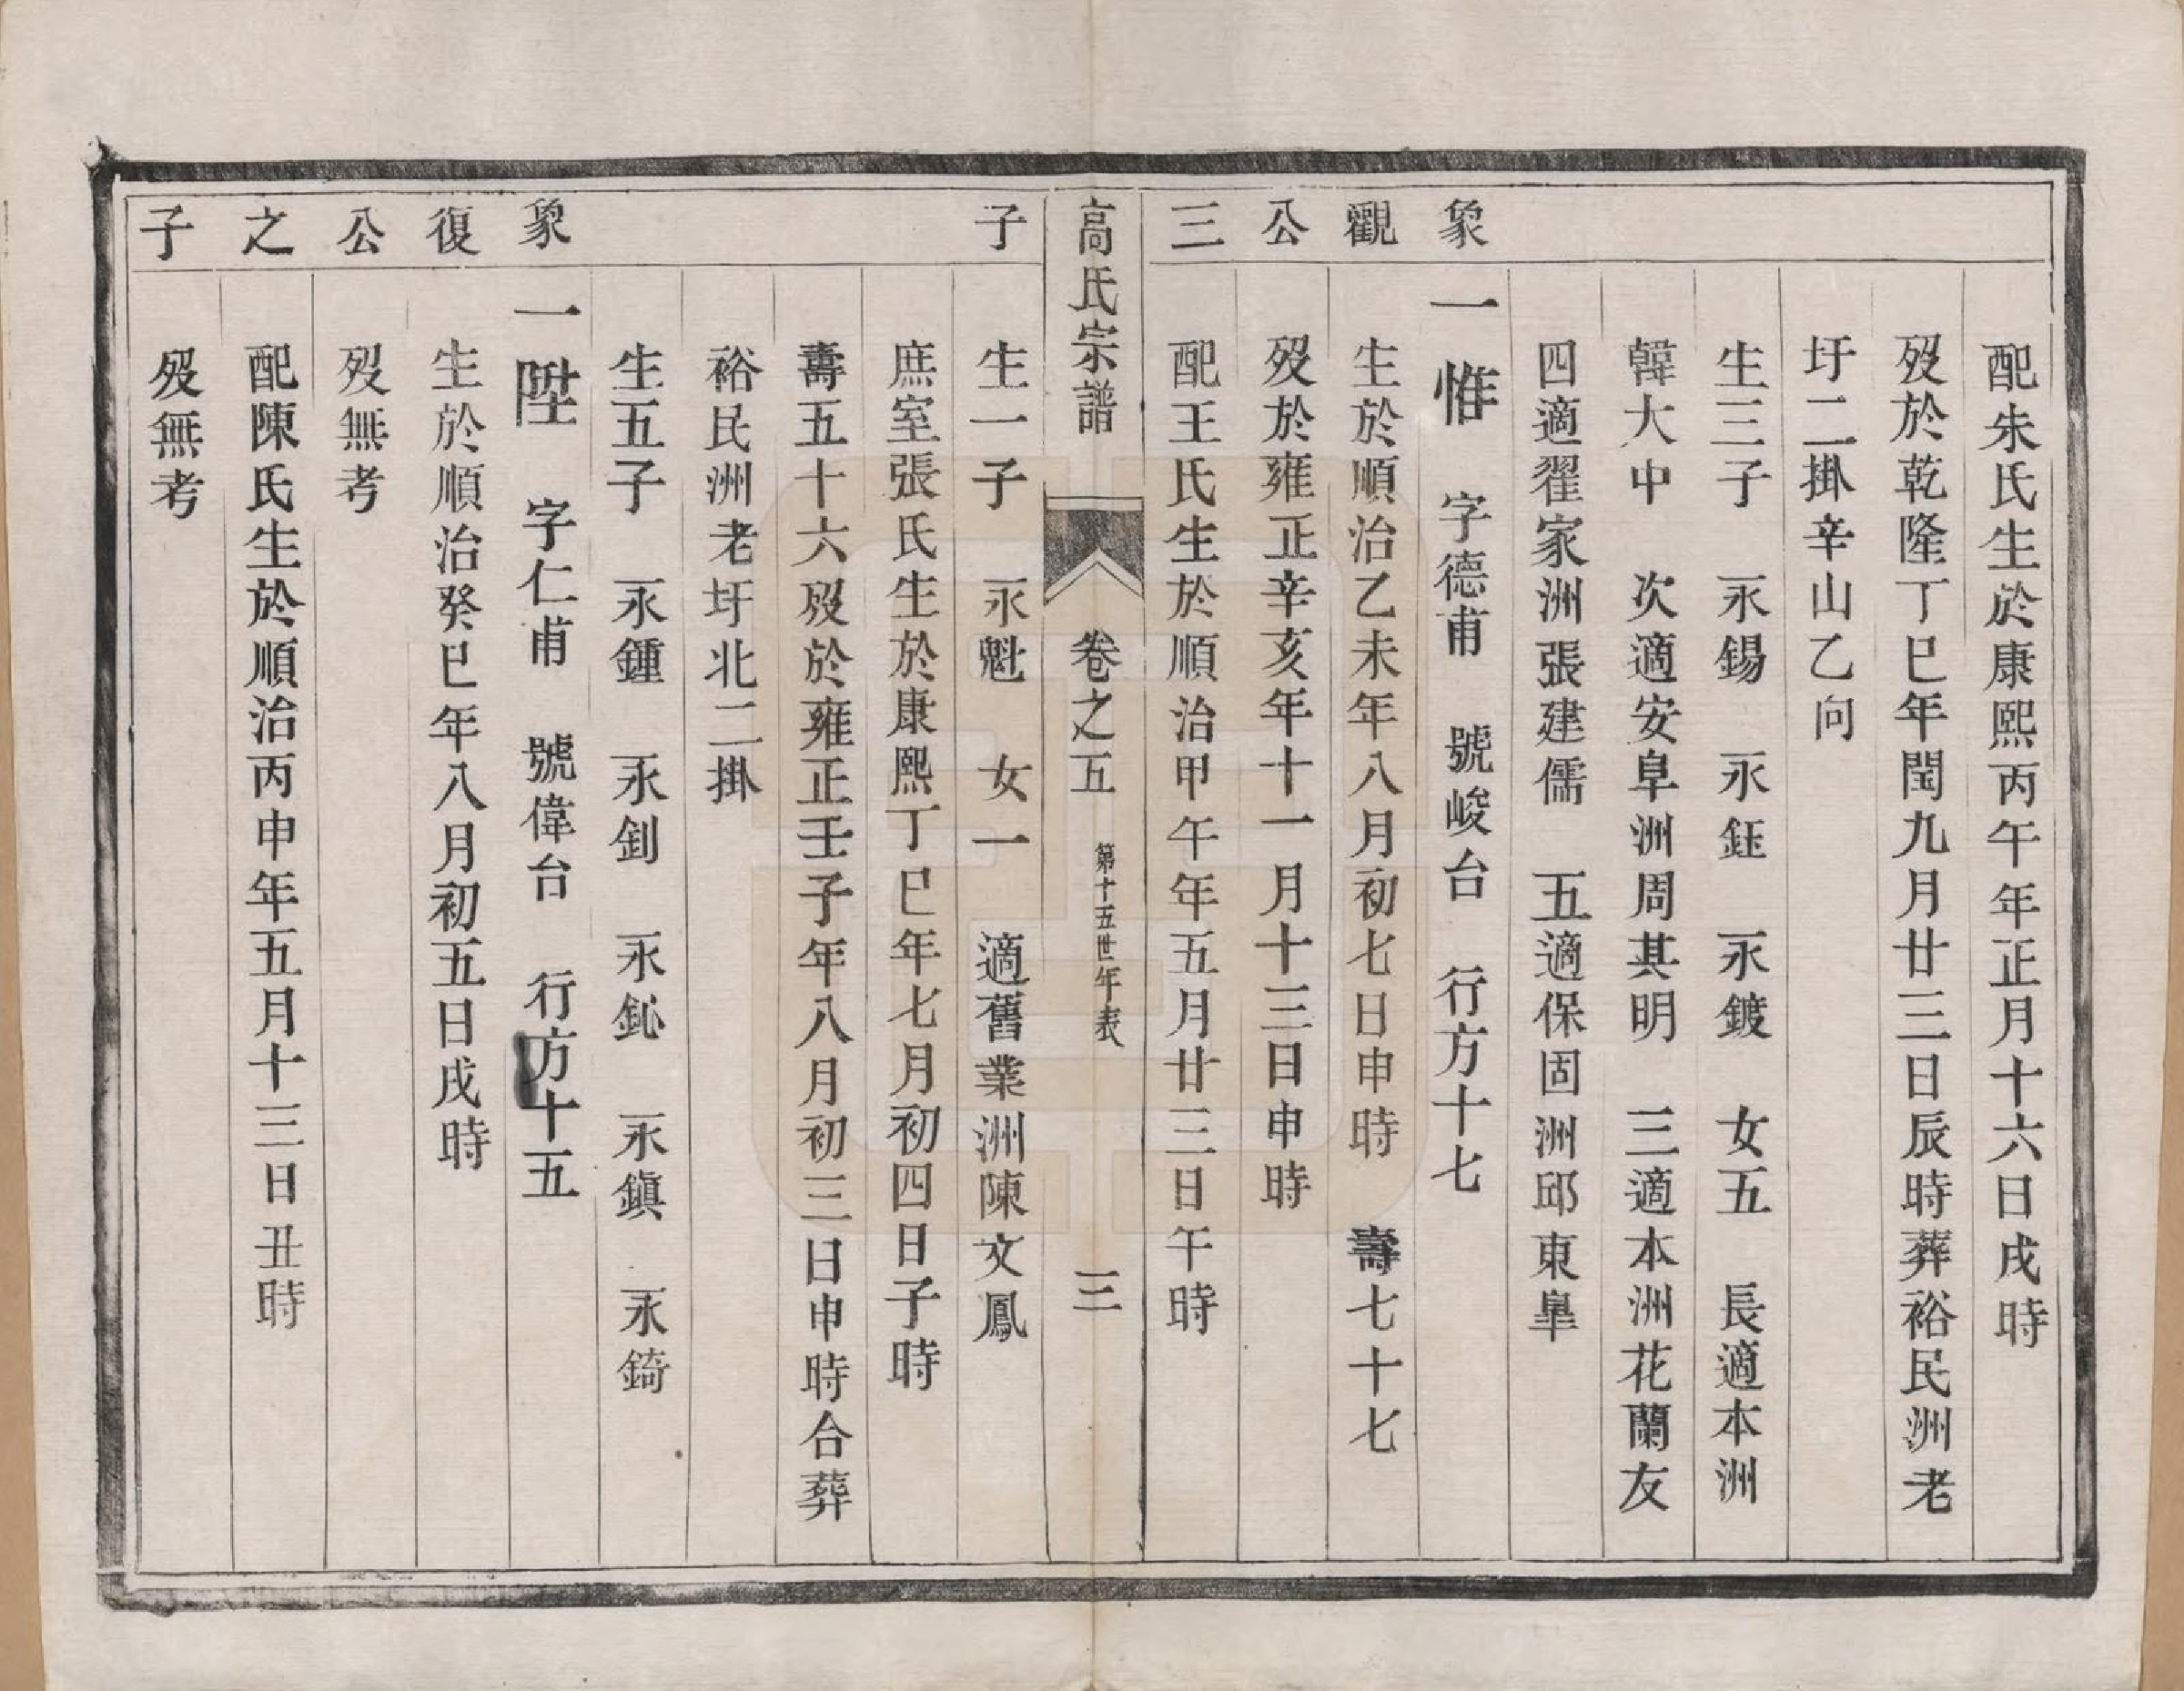 配朱氏生於康熙丙午年正月十六日戌時
歿於乾隆丁巳年閏九月廿三日辰時葬裕民洲老
圩二掛辛山乙向
生三子 永錫 永鈺 永鍍 女五 長適本洲
韓大中 次適安阜洲周其明 三適本洲花蘭友
四適翟家洲張建儒 五適保固洲邱東臯
象觀公三子
一惟 字德甫 號峻台 行方十七
生於順治乙未年八月初七日申時 壽七十七
歿於雍正辛亥年十一月十三日申時
配王氏生於順治甲午年五月廿三日午時
高氏宗譜 卷之五 第十五世年表 三
生一子 永魁 女一 適舊業洲陳文鳳
庶室張氏生於康熙丁巳年七月初四日子時
壽五十六歿於雍正壬子年八月初三日申時合葬
裕民洲老圩北二掛
生五子 永鍾 永釗 永鈊 永鎭 永錡
象復公之子
一陞 字仁甫 號偉台 行方十五
生於順治癸巳年八月初五日戌時
歿無考
配陳氏生於順治丙申年五月十三日丑時
歿無考